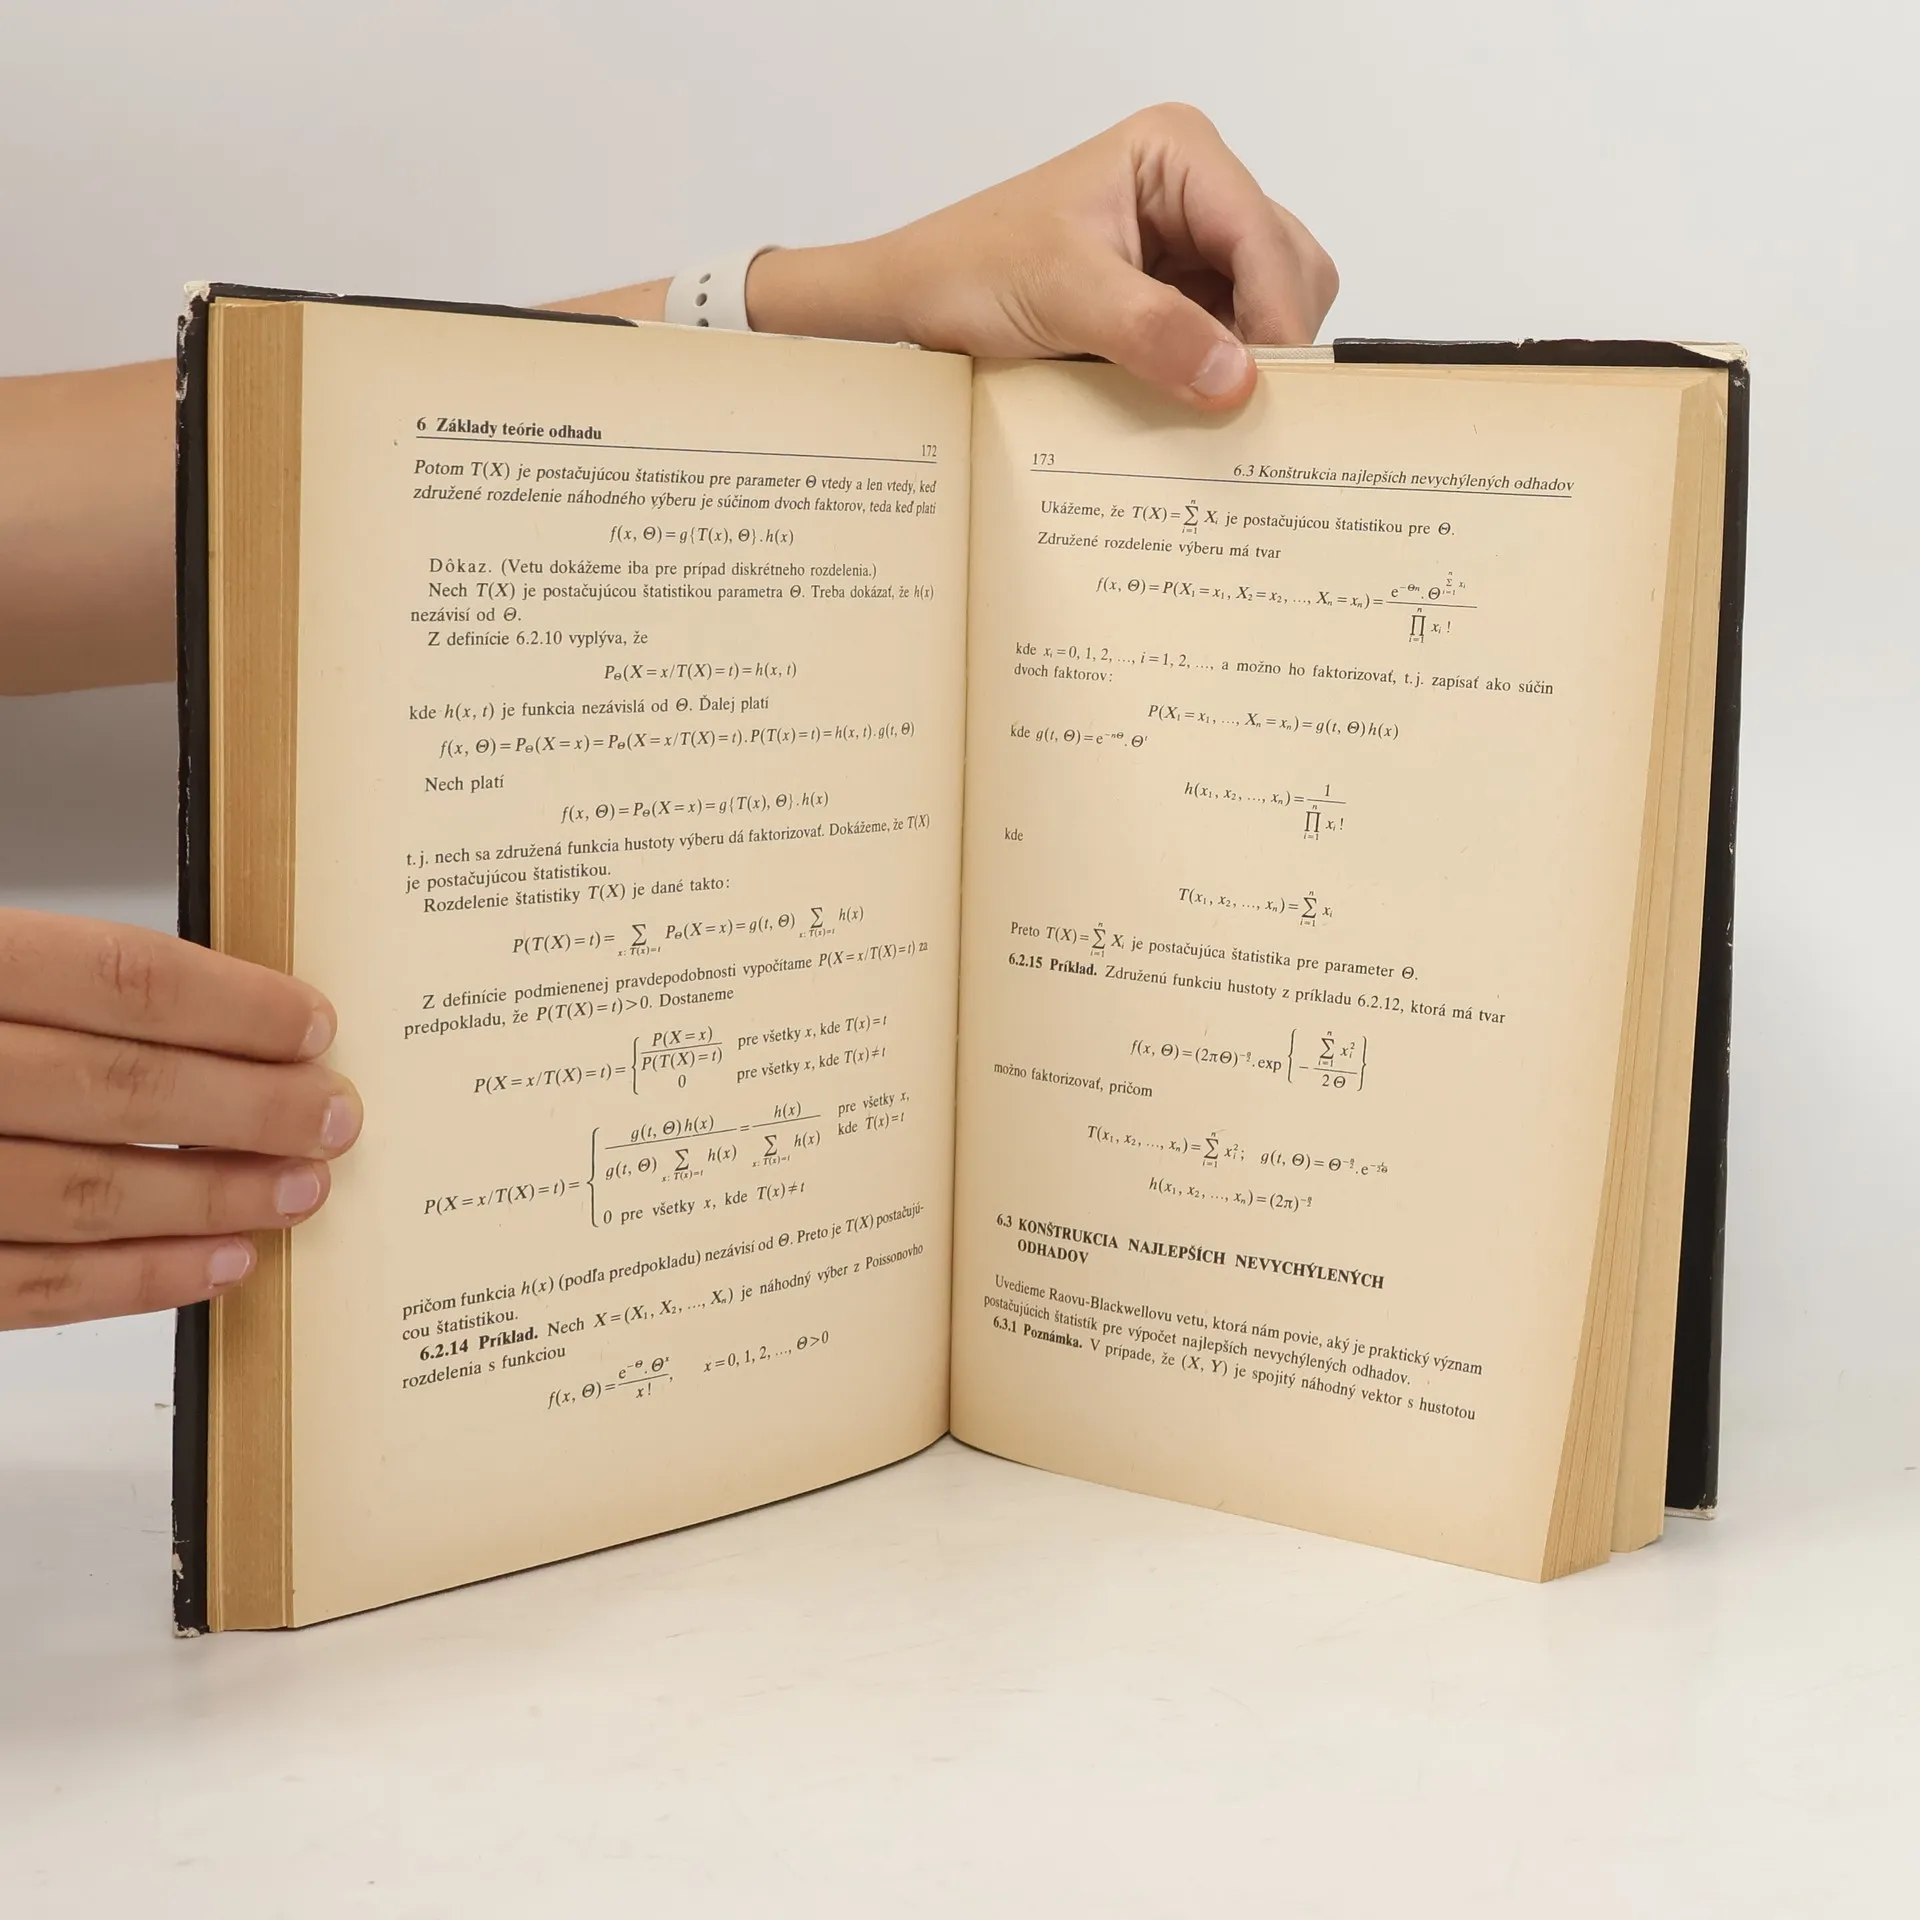 6 Základy teórie odhadu
172
Potom T(X) je postačujúcou štatistikou pre parameter Θ vtedy a len vtedy, keď
združené rozdelenie náhodného výberu je súčinom dvoch faktorov, teda keď platí
f(x, Θ)=g{T(x), Θ}.h(x)
Dôkaz. (Vetu dokážeme iba pre prípad diskrétneho rozdelenia.)
Nech T(X) je postačujúcou štatistikou parametra Θ. Treba dokázať, že h(x)
nezávisí od Θ.
Z definície 6.2.10 vyplýva, že
P_Θ(X=x/T(X)=t)=h(x, t)
kde h(x, t) je funkcia nezávislá od Θ. Ďalej platí
f(x, Θ)=P_Θ(X=x)=P_Θ(X=x/T(X)=t).P(T(x)=t)=h(x, t).g(t, Θ)
Nech platí
f(x, Θ)=P_Θ(X=x)=g{T(x), Θ}.h(x)
t.j. nech sa združená funkcia hustoty výberu dá faktorizovať. Dokážeme, že T(X)
je postačujúcou štatistikou.
Rozdelenie štatistiky T(X) je dané takto:
P(T(X)=t)= ∑_{x: T(x)=t} P_Θ(X=x)=g(t, Θ) ∑_{x: T(x)=t} h(x)
Z definície podmienenej pravdepodobnosti vypočítame P(X=x/T(X)=t) za
predpokladu, že P(T(X)=t)>0. Dostaneme
P(X=x/T(X)=t)= { P(X=x) / P(T(X)=t) pre všetky x, kde T(x)=t
0 pre všetky x, kde T(x)≠t
P(X=x/T(X)=t)= { g(t, Θ)h(x) / g(t, Θ) ∑_{x: T(x)=t} h(x) = h(x) / ∑_{x: T(x)=t} h(x) pre všetky x,
kde T(x)=t
0 pre všetky x, kde T(x)≠t
pričom funkcia h(x) (podľa predpokladu) nezávisí od Θ. Preto je T(X) postačujú-
cou štatistikou.
6.2.14 Príklad. Nech X=(X₁, X₂, ..., Xₙ) je náhodný výber z Poissonovho
rozdelenia s funkciou
f(x, Θ)= e^{-Θ}.Θ^x / x!, x=0, 1, 2, ..., Θ>0
173
6.3 Konštrukcia najlepších nevychýlených odhadov
Ukážeme, že T(X)=∑_{i=1}^{n} Xᵢ je postačujúcou štatistikou pre Θ.
Združené rozdelenie výberu má tvar
f(x, Θ)=P(X₁=x₁, X₂=x₂, ..., Xₙ=xₙ)= e^{-Θn}.Θ^{∑_{i=1}^{n} xᵢ} / ∏_{i=1}^{n} xᵢ!
kde xᵢ=0, 1, 2, ..., i=1, 2, ..., a možno ho faktorizovať, t.j. zapísať ako súčin
dvoch faktorov:
P(X₁=x₁, ..., Xₙ=xₙ)=g(t, Θ)h(x)
kde g(t, Θ)=e^{-nΘ}.Θ^t
h(x₁, x₂, ..., xₙ)= 1 / ∏_{i=1}^{n} xᵢ!
kde
T(x₁, x₂, ..., xₙ)=∑_{i=1}^{n} xᵢ
Preto T(X)=∑_{i=1}^{n} Xᵢ je postačujúca štatistika pre parameter Θ.
6.2.15 Príklad. Združenú funkciu hustoty z príkladu 6.2.12, ktorá má tvar
f(x, Θ)=(2πΘ)^{-n/2}.exp { - ∑_{i=1}^{n} xᵢ² / 2Θ }
možno faktorizovať, pričom
T(x₁, x₂, ..., xₙ)=∑_{i=1}^{n} xᵢ²; g(t, Θ)=Θ^{-n/2}.e^{-t/2Θ}
h(x₁, x₂, ..., xₙ)=(2π)^{-n/2}
6.3 KONŠTRUKCIA NAJLEPŠÍCH NEVYCHÝLENÝCH
ODHADOV
Uvedieme Raovu-Blackwellovu vetu, ktorá nám povie, aký je praktický význam
postačujúcich štatistík pre výpočet najlepších nevychýlených odhadov.
6.3.1 Poznámka. V prípade, že (X, Y) je spojitý náhodný vektor s hustotou